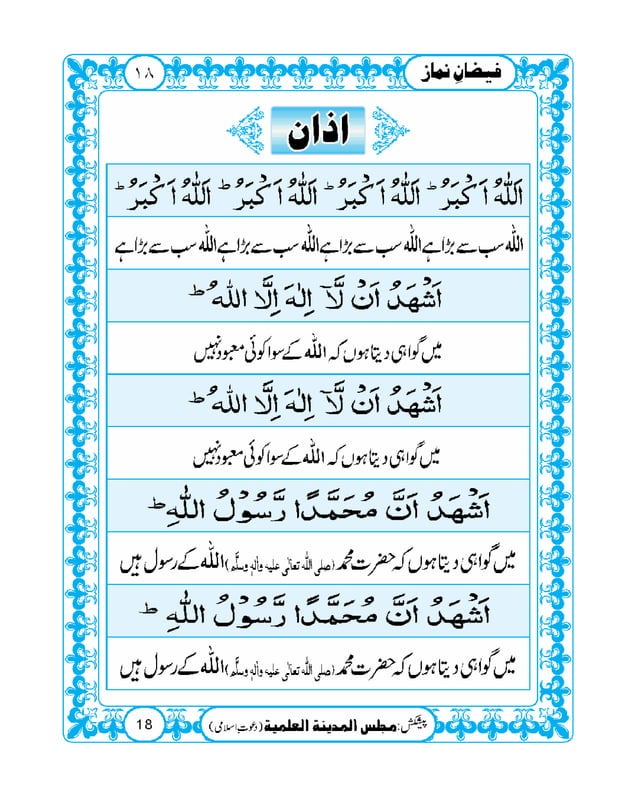 فیضانِ نماز ۱۸
اذان
اَللّٰهُ اَكْبَرُ ؕ اَللّٰهُ اَكْبَرُ ؕ اَللّٰهُ اَكْبَرُ ؕ اَللّٰهُ اَكْبَرُ ؕ
اللہ سب سے بڑا ہے اللہ سب سے بڑا ہے اللہ سب سے بڑا ہے اللہ سب سے بڑا ہے
اَشْهَدُ اَنْ لَّاۤ اِلٰهَ اِلَّا اللهُ ؕ
میں گواہی دیتا ہوں کہ اللہ کے سوا کوئی معبود نہیں
اَشْهَدُ اَنْ لَّاۤ اِلٰهَ اِلَّا اللهُ ؕ
میں گواہی دیتا ہوں کہ اللہ کے سوا کوئی معبود نہیں
اَشْهَدُ اَنَّ مُحَمَّدًا رَّسُوْلُ اللهِ ؕ
میں گواہی دیتا ہوں کہ حضرت محمد (صلی اللہ تعالٰی علیہ واٰلہٖ وسلَّم) اللہ کے رسول ہیں
اَشْهَدُ اَنَّ مُحَمَّدًا رَّسُوْلُ اللهِ ؕ
میں گواہی دیتا ہوں کہ حضرت محمد (صلی اللہ تعالٰی علیہ واٰلہٖ وسلَّم) اللہ کے رسول ہیں
پیشکش: مجلس المدینة العلمیة (دعوتِ اسلامی) 18